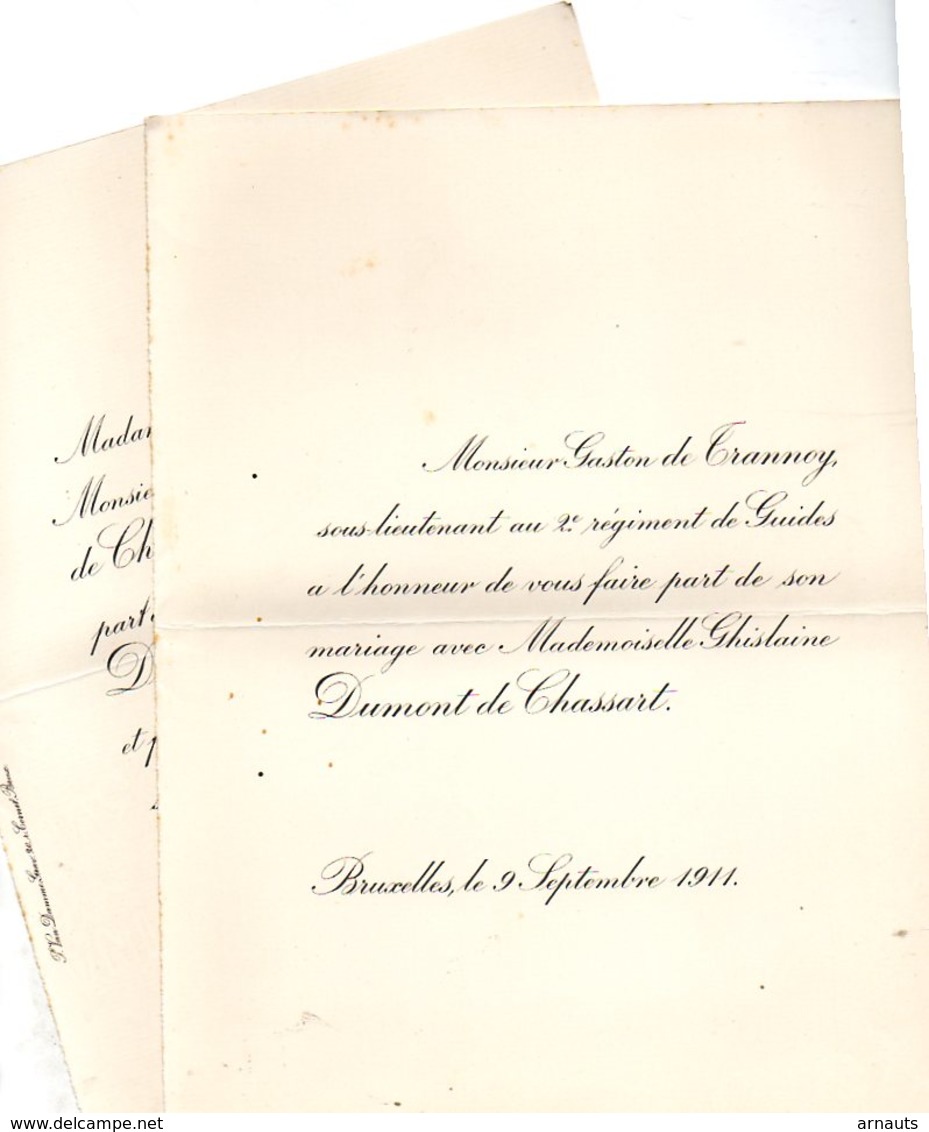 Madam
Monsie
de Ch
part
D
et p
P. Van Damme
Monsieur Gaston de Trannoy,
sous-lieutenant au 2e régiment de Guides
a l'honneur de vous faire part de son
mariage avec Mademoiselle Ghislaine
Dumont de Chassart.
Bruxelles, le 9 Septembre 1911.
arnauts